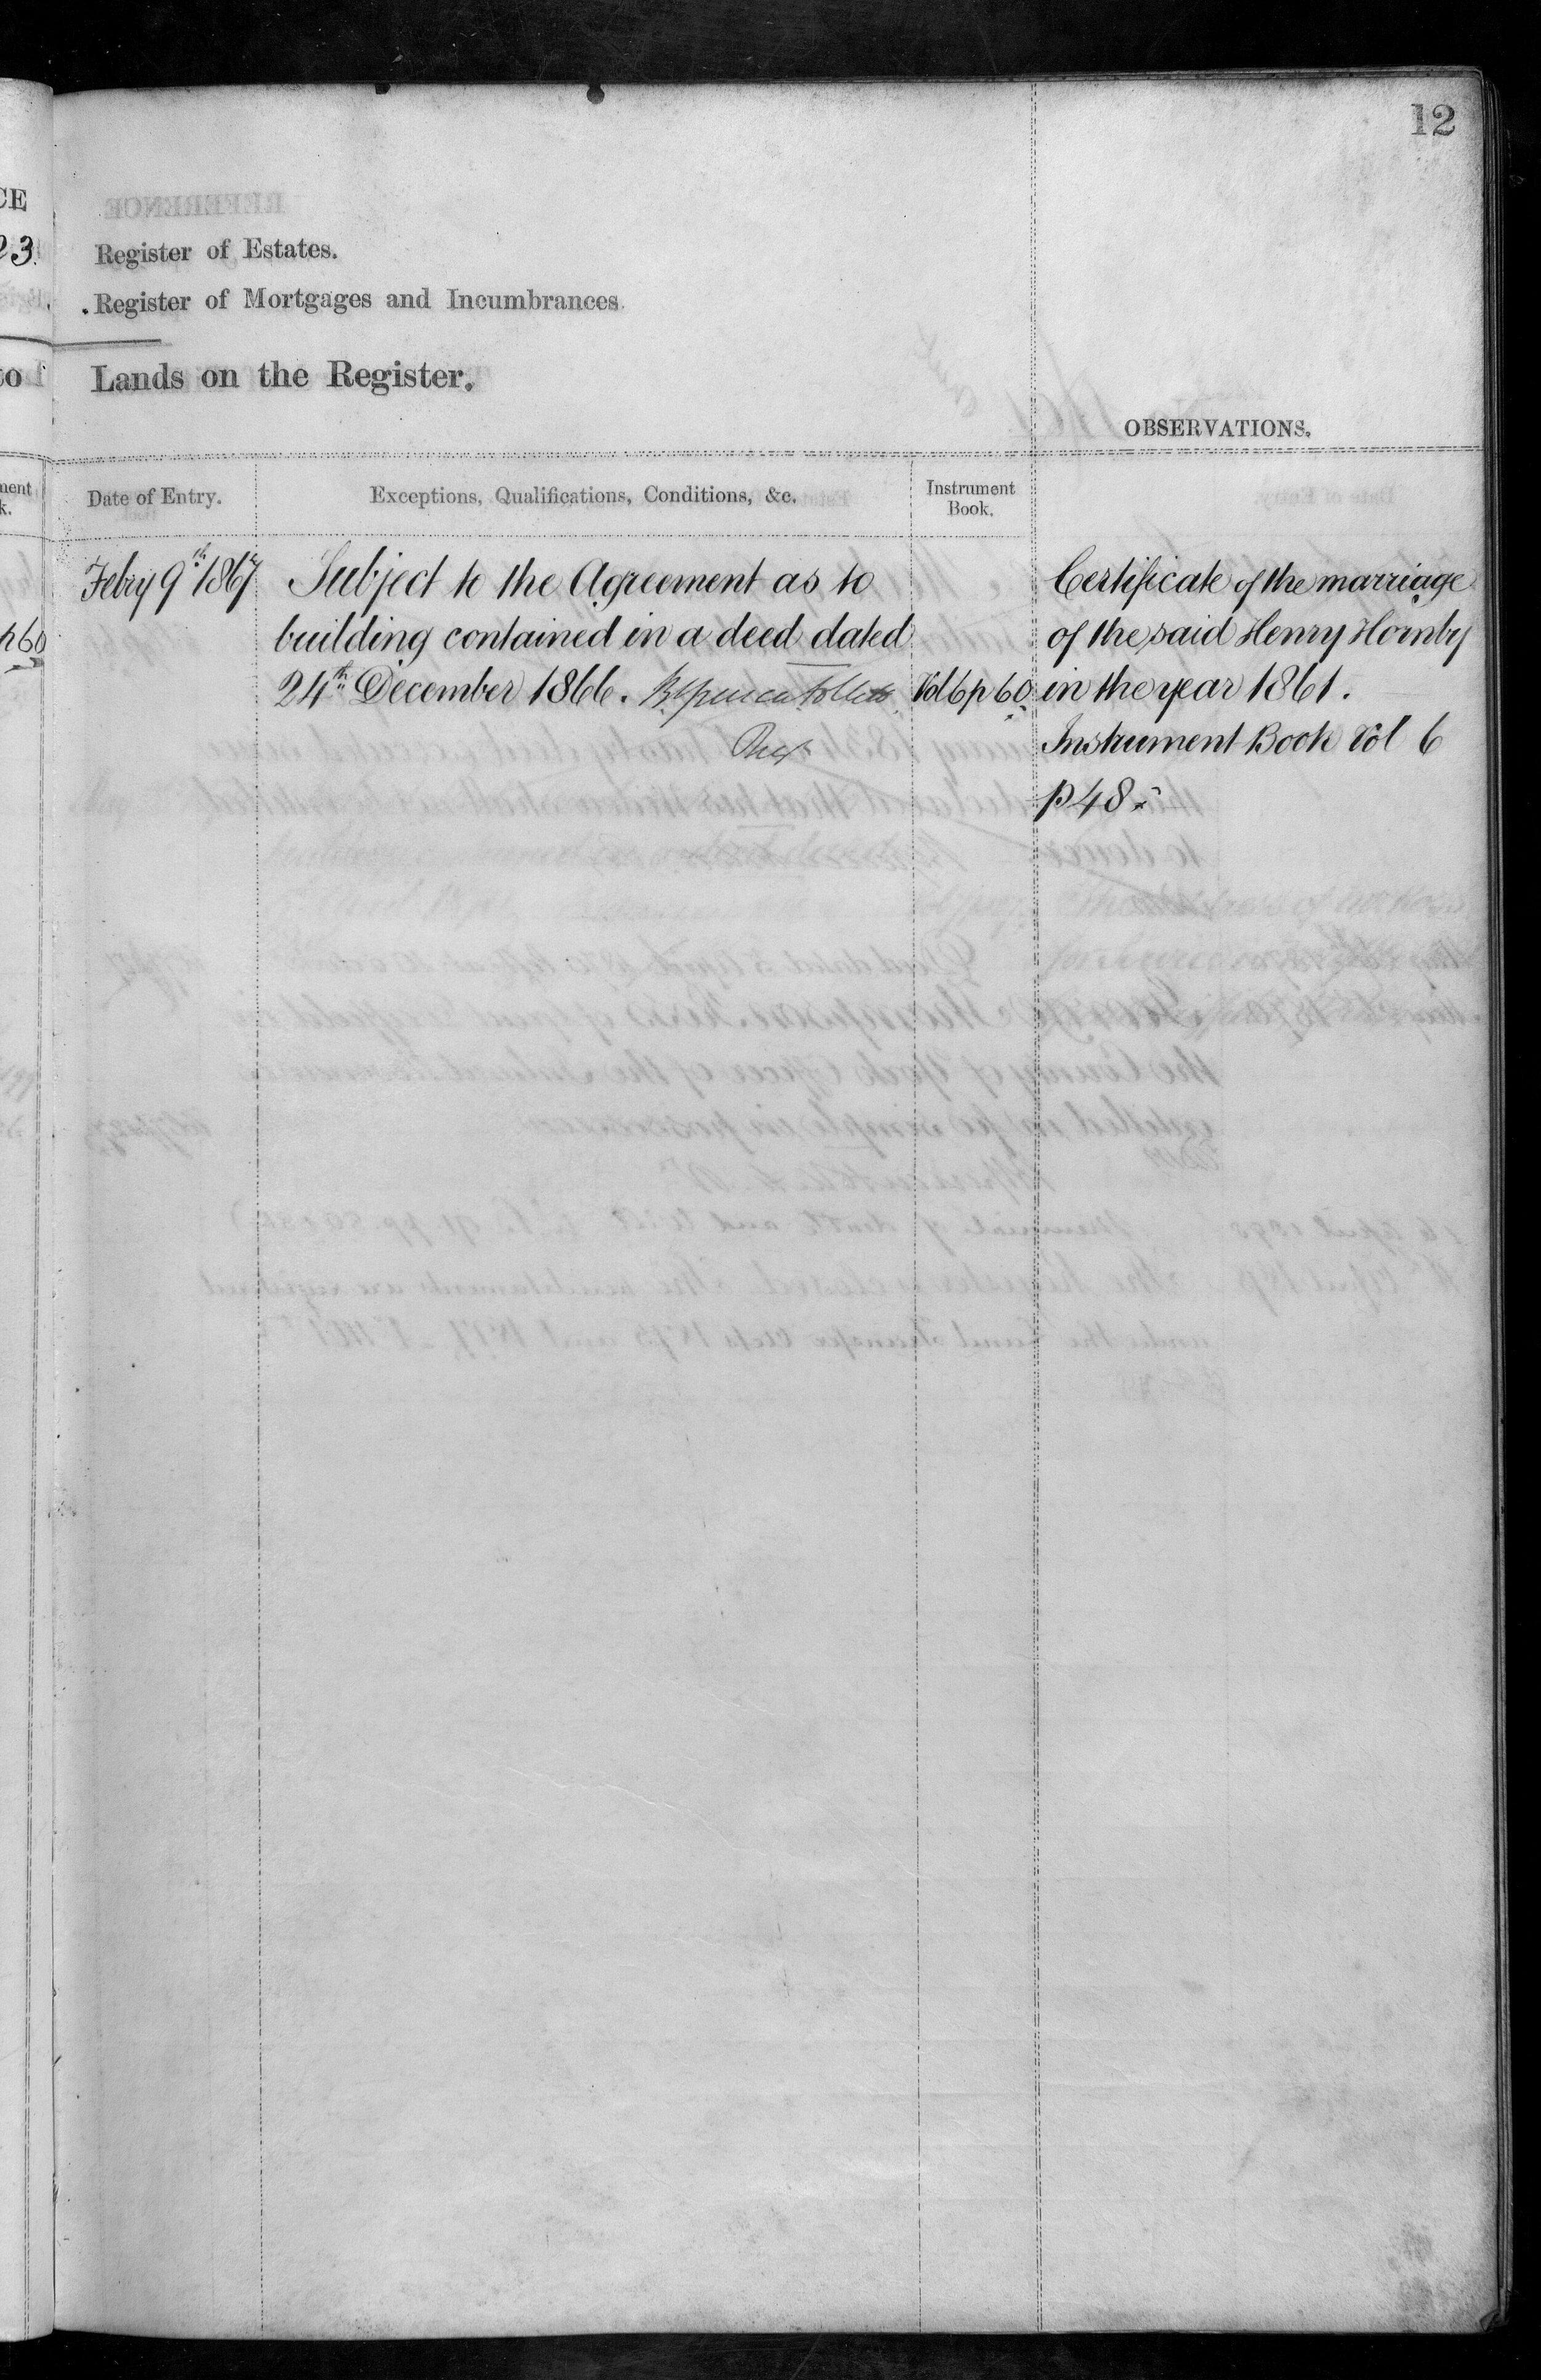 12
CE
23.
Register of Estates.
Register of Mortgages and Incumbrances.
to
Lands on the Register.
OBSERVATIONS.
ment
k.
Date of Entry.
Exceptions, Qualifications, Conditions, &c.
Instrument
Book.
Febry 9th 1867
Subject to the Agreement as to
building contained in a deed dated
24th December 1866.
Vol 6 p 60
p 60
Certificate of the marriage
of the said Henry Hornby
in the year 1861.
Instrument Book Vol 6
p 48